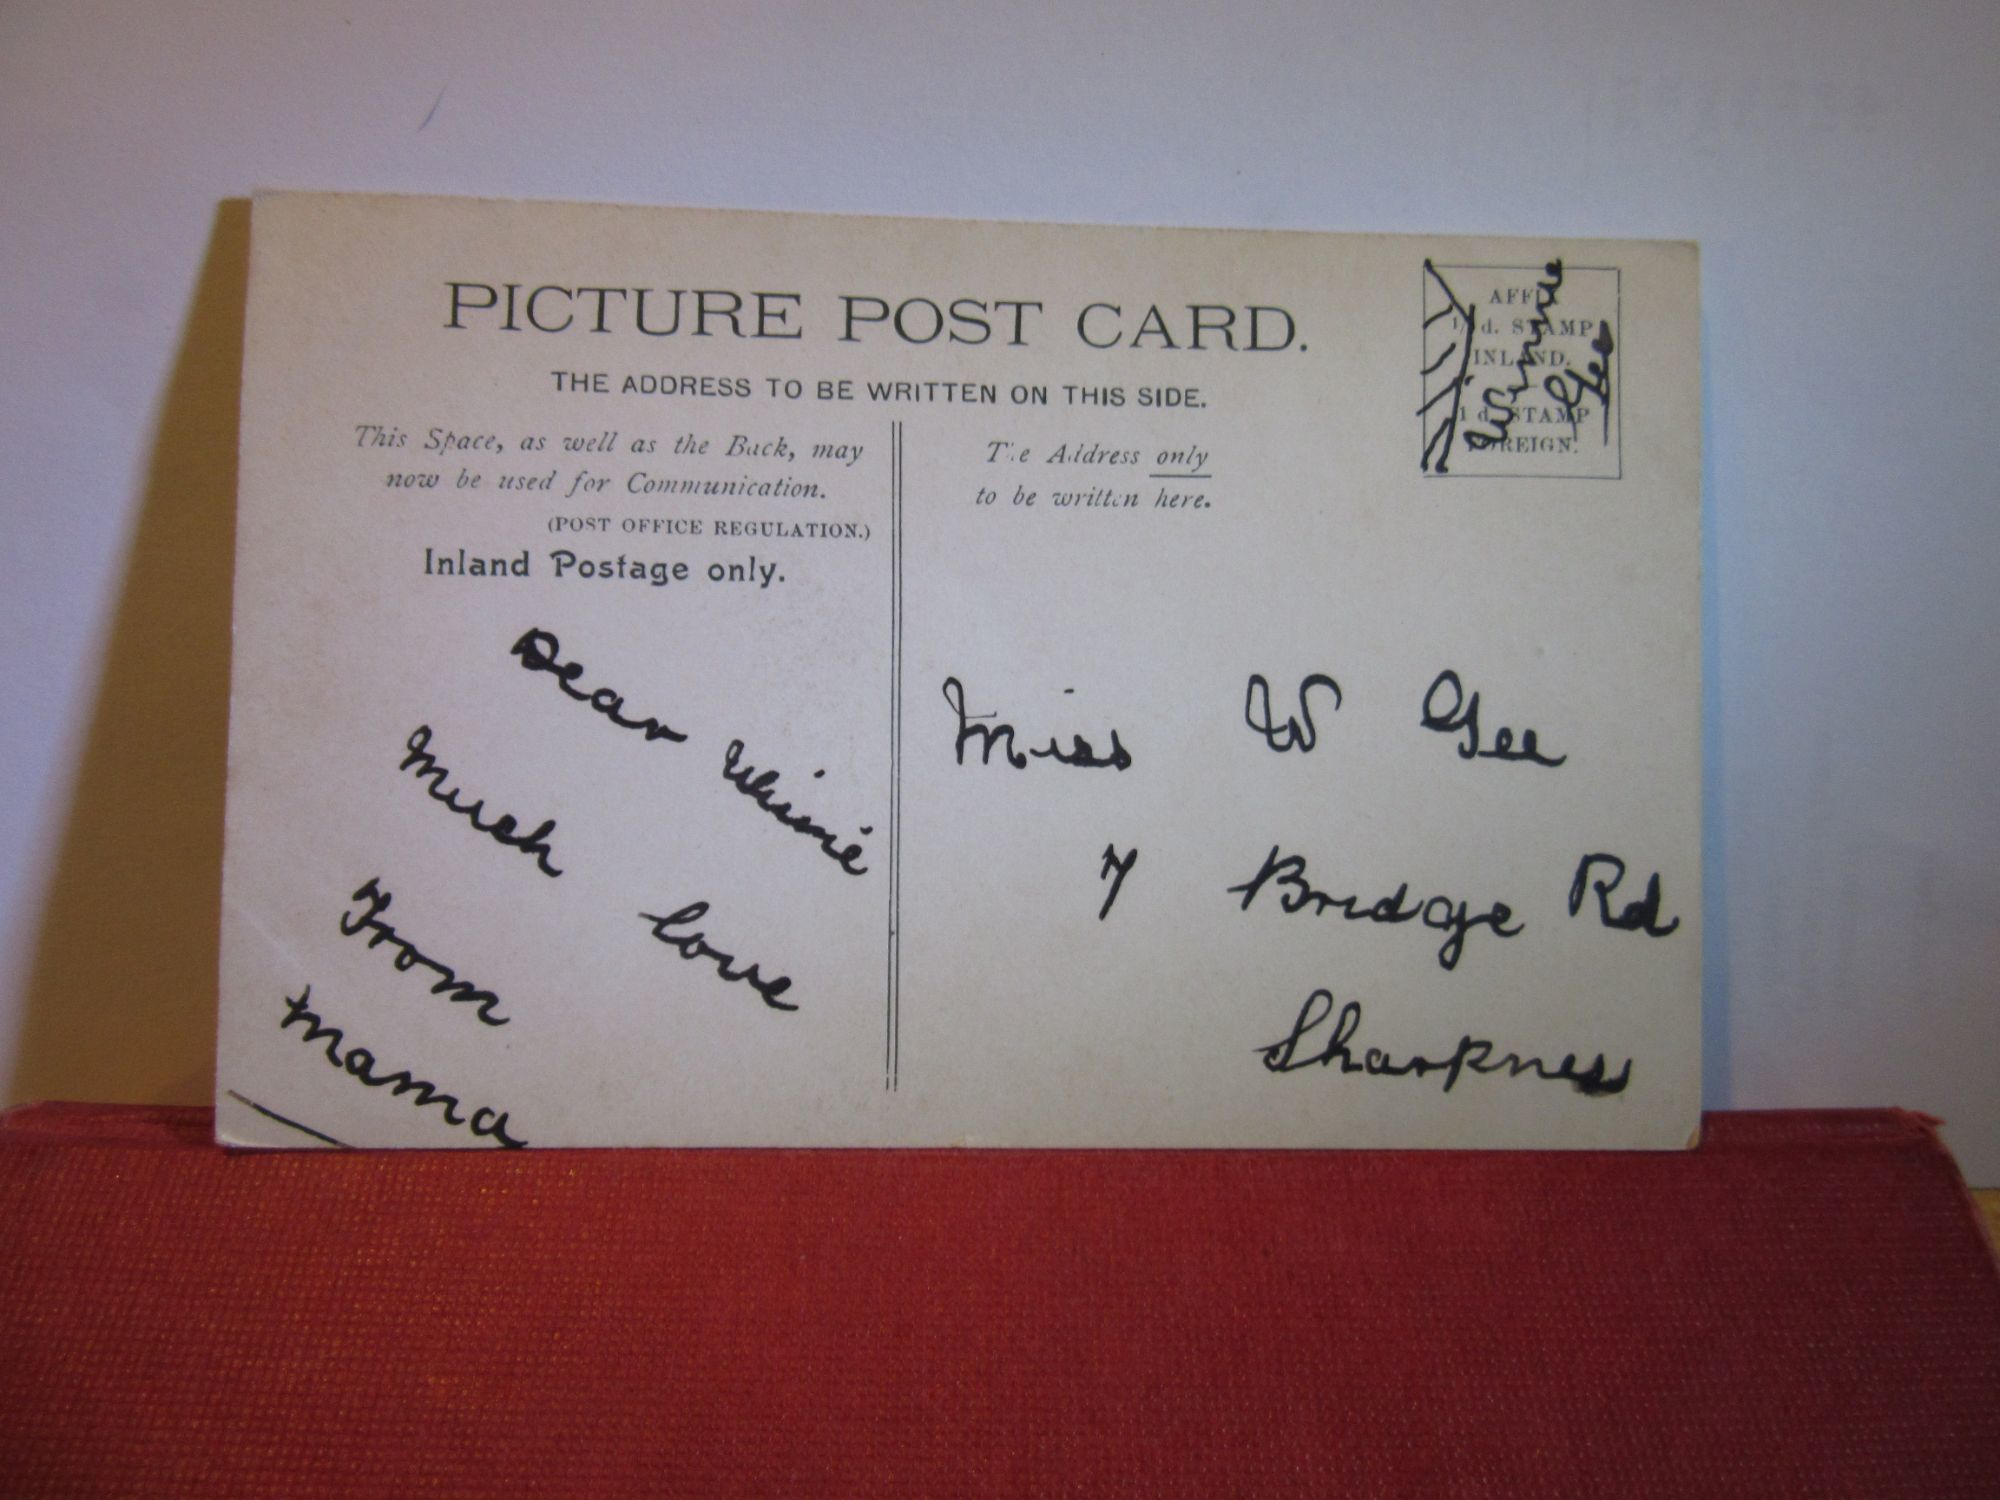 PICTURE POST CARD.
THE ADDRESS TO BE WRITTEN ON THIS SIDE.
This Space, as well as the Back, may
now be used for Communication.
(POST OFFICE REGULATION.)
Inland Postage only.
Dear Winnie
Much love
From
Mama
The Address only
to be written here.
AFFIX
½d. STAMP
INLAND.
1d. STAMP
FOREIGN.
Winnie
Gee
Miss W Gee
7 Bridge Rd
Sharpness